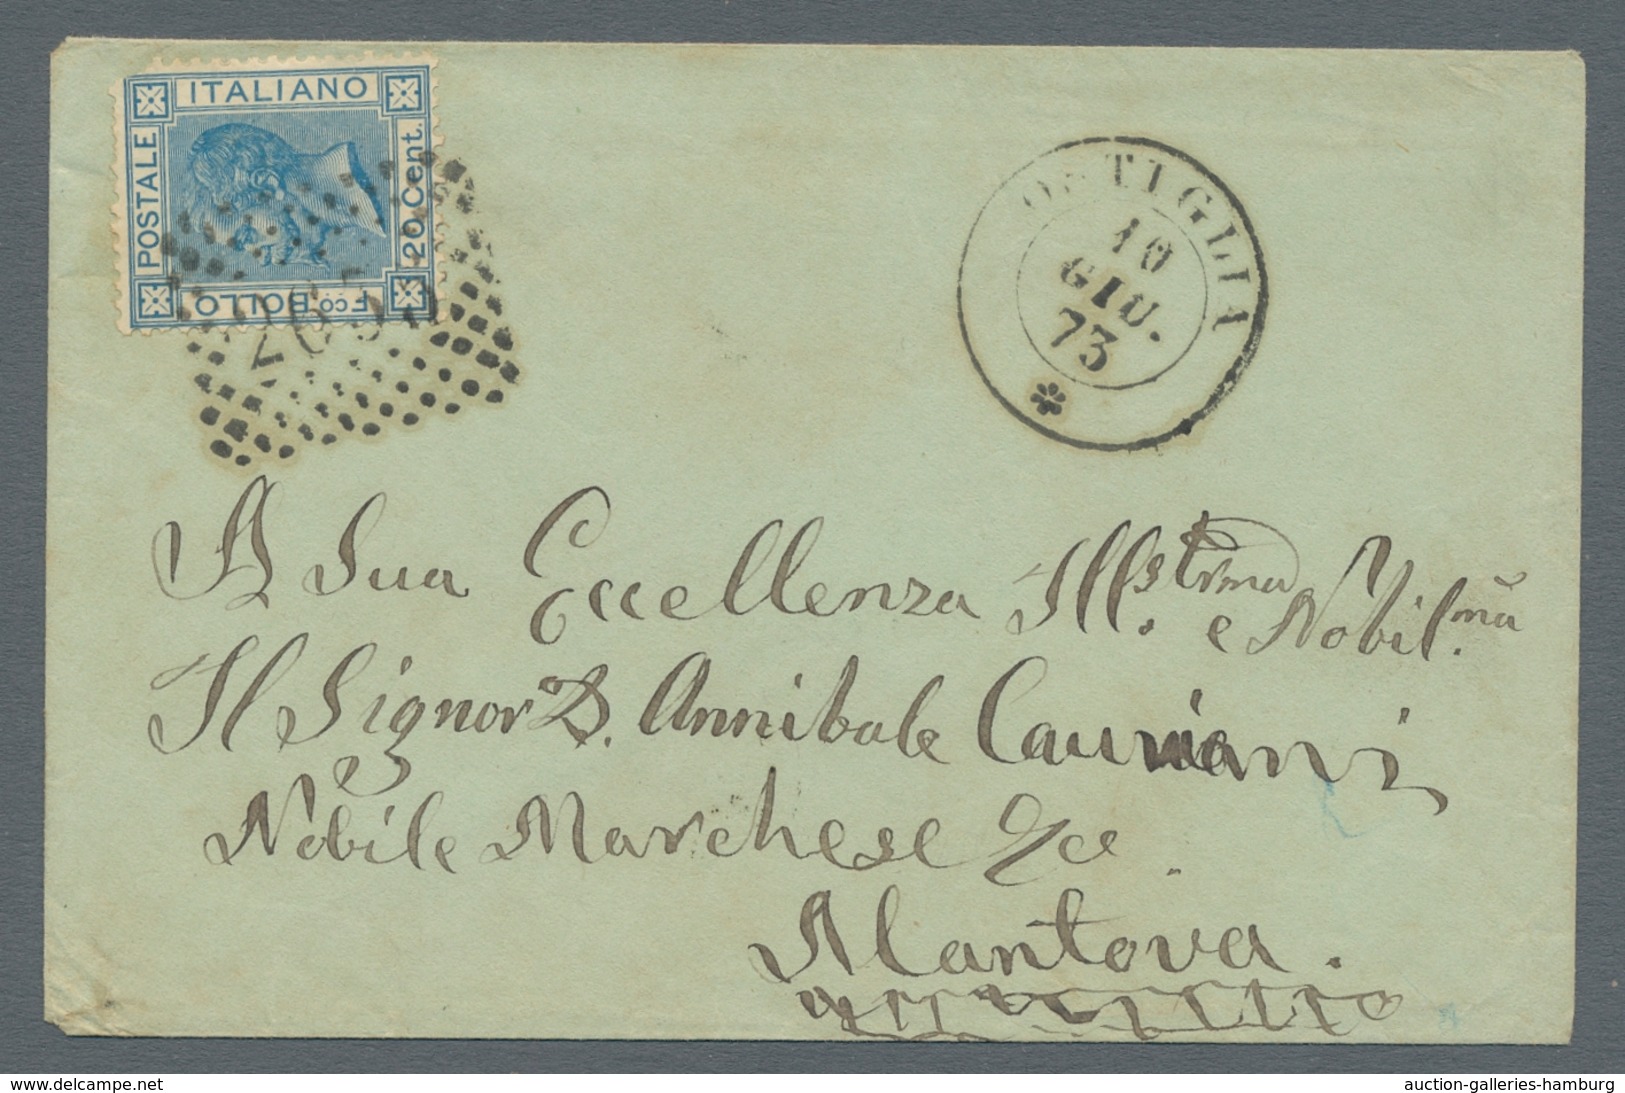 ITALIANO
POSTALE
20 Cent.
Fco BOLLO
OSTIGLIA
10
GIU.
73
A Sua Eccellenza Ill.strma e Nobil.ma
Il Signor D. Annibale
Nobile Marchese
Mantova.
www.delcampe.net
auction-galleries-hamburg